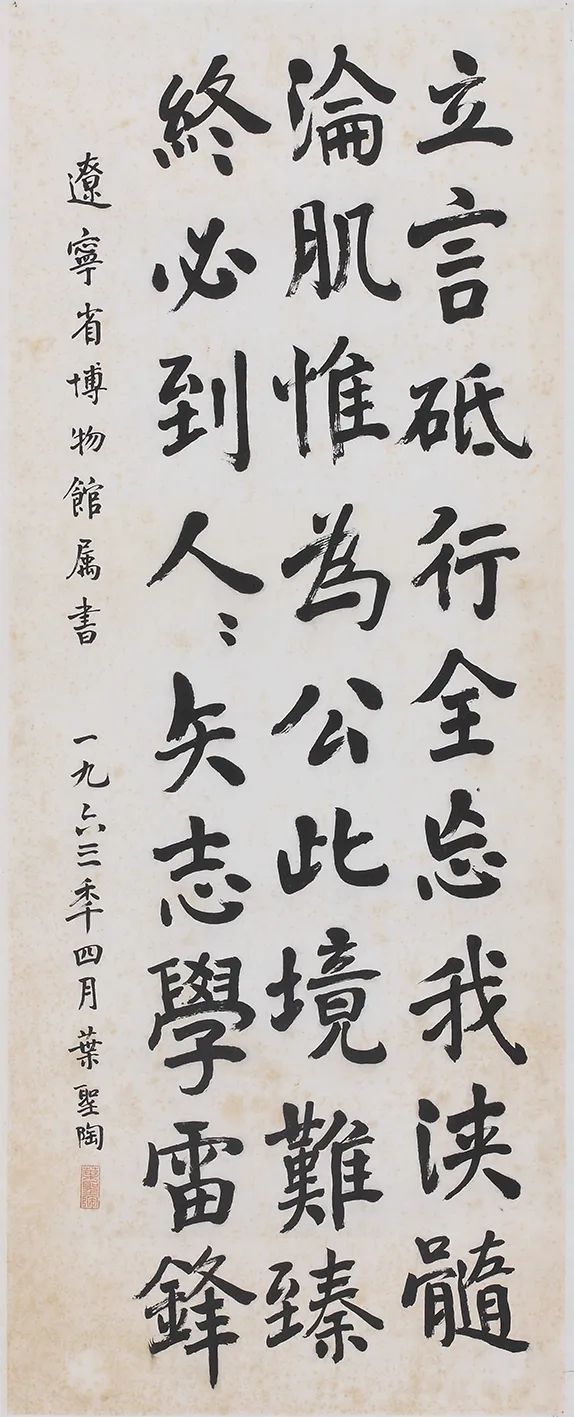 立言砥行全忘我浹髓
淪肌惟為公此境難臻
終必到人〻矢志學雷鋒
遼寧省博物館属書 一九六三年四月葉聖陶
葉聖陶